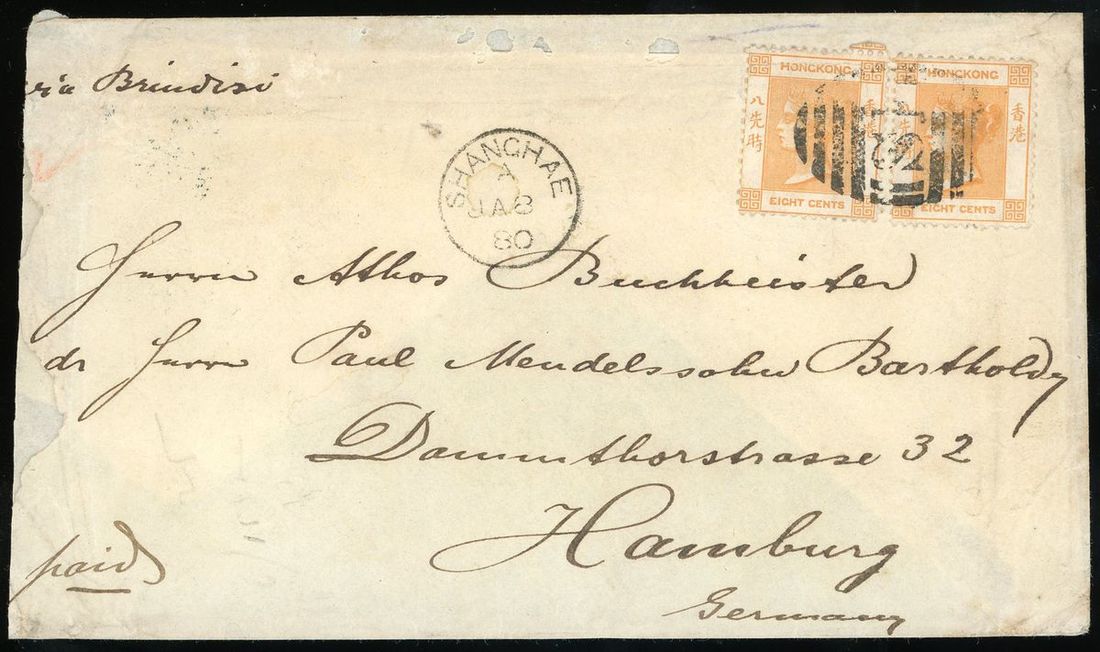 via Brindisi
HONGKONG
八先時
香港
EIGHT CENTS
HONGKONG
香港
EIGHT CENTS
62
SHANGHAE
A
JA 8
80
Herrn Athos Buchheister
dr Herrn Paul Mendelssohn Bartholdy
Dammthorstrasse 32
Hamburg
Germany
paid